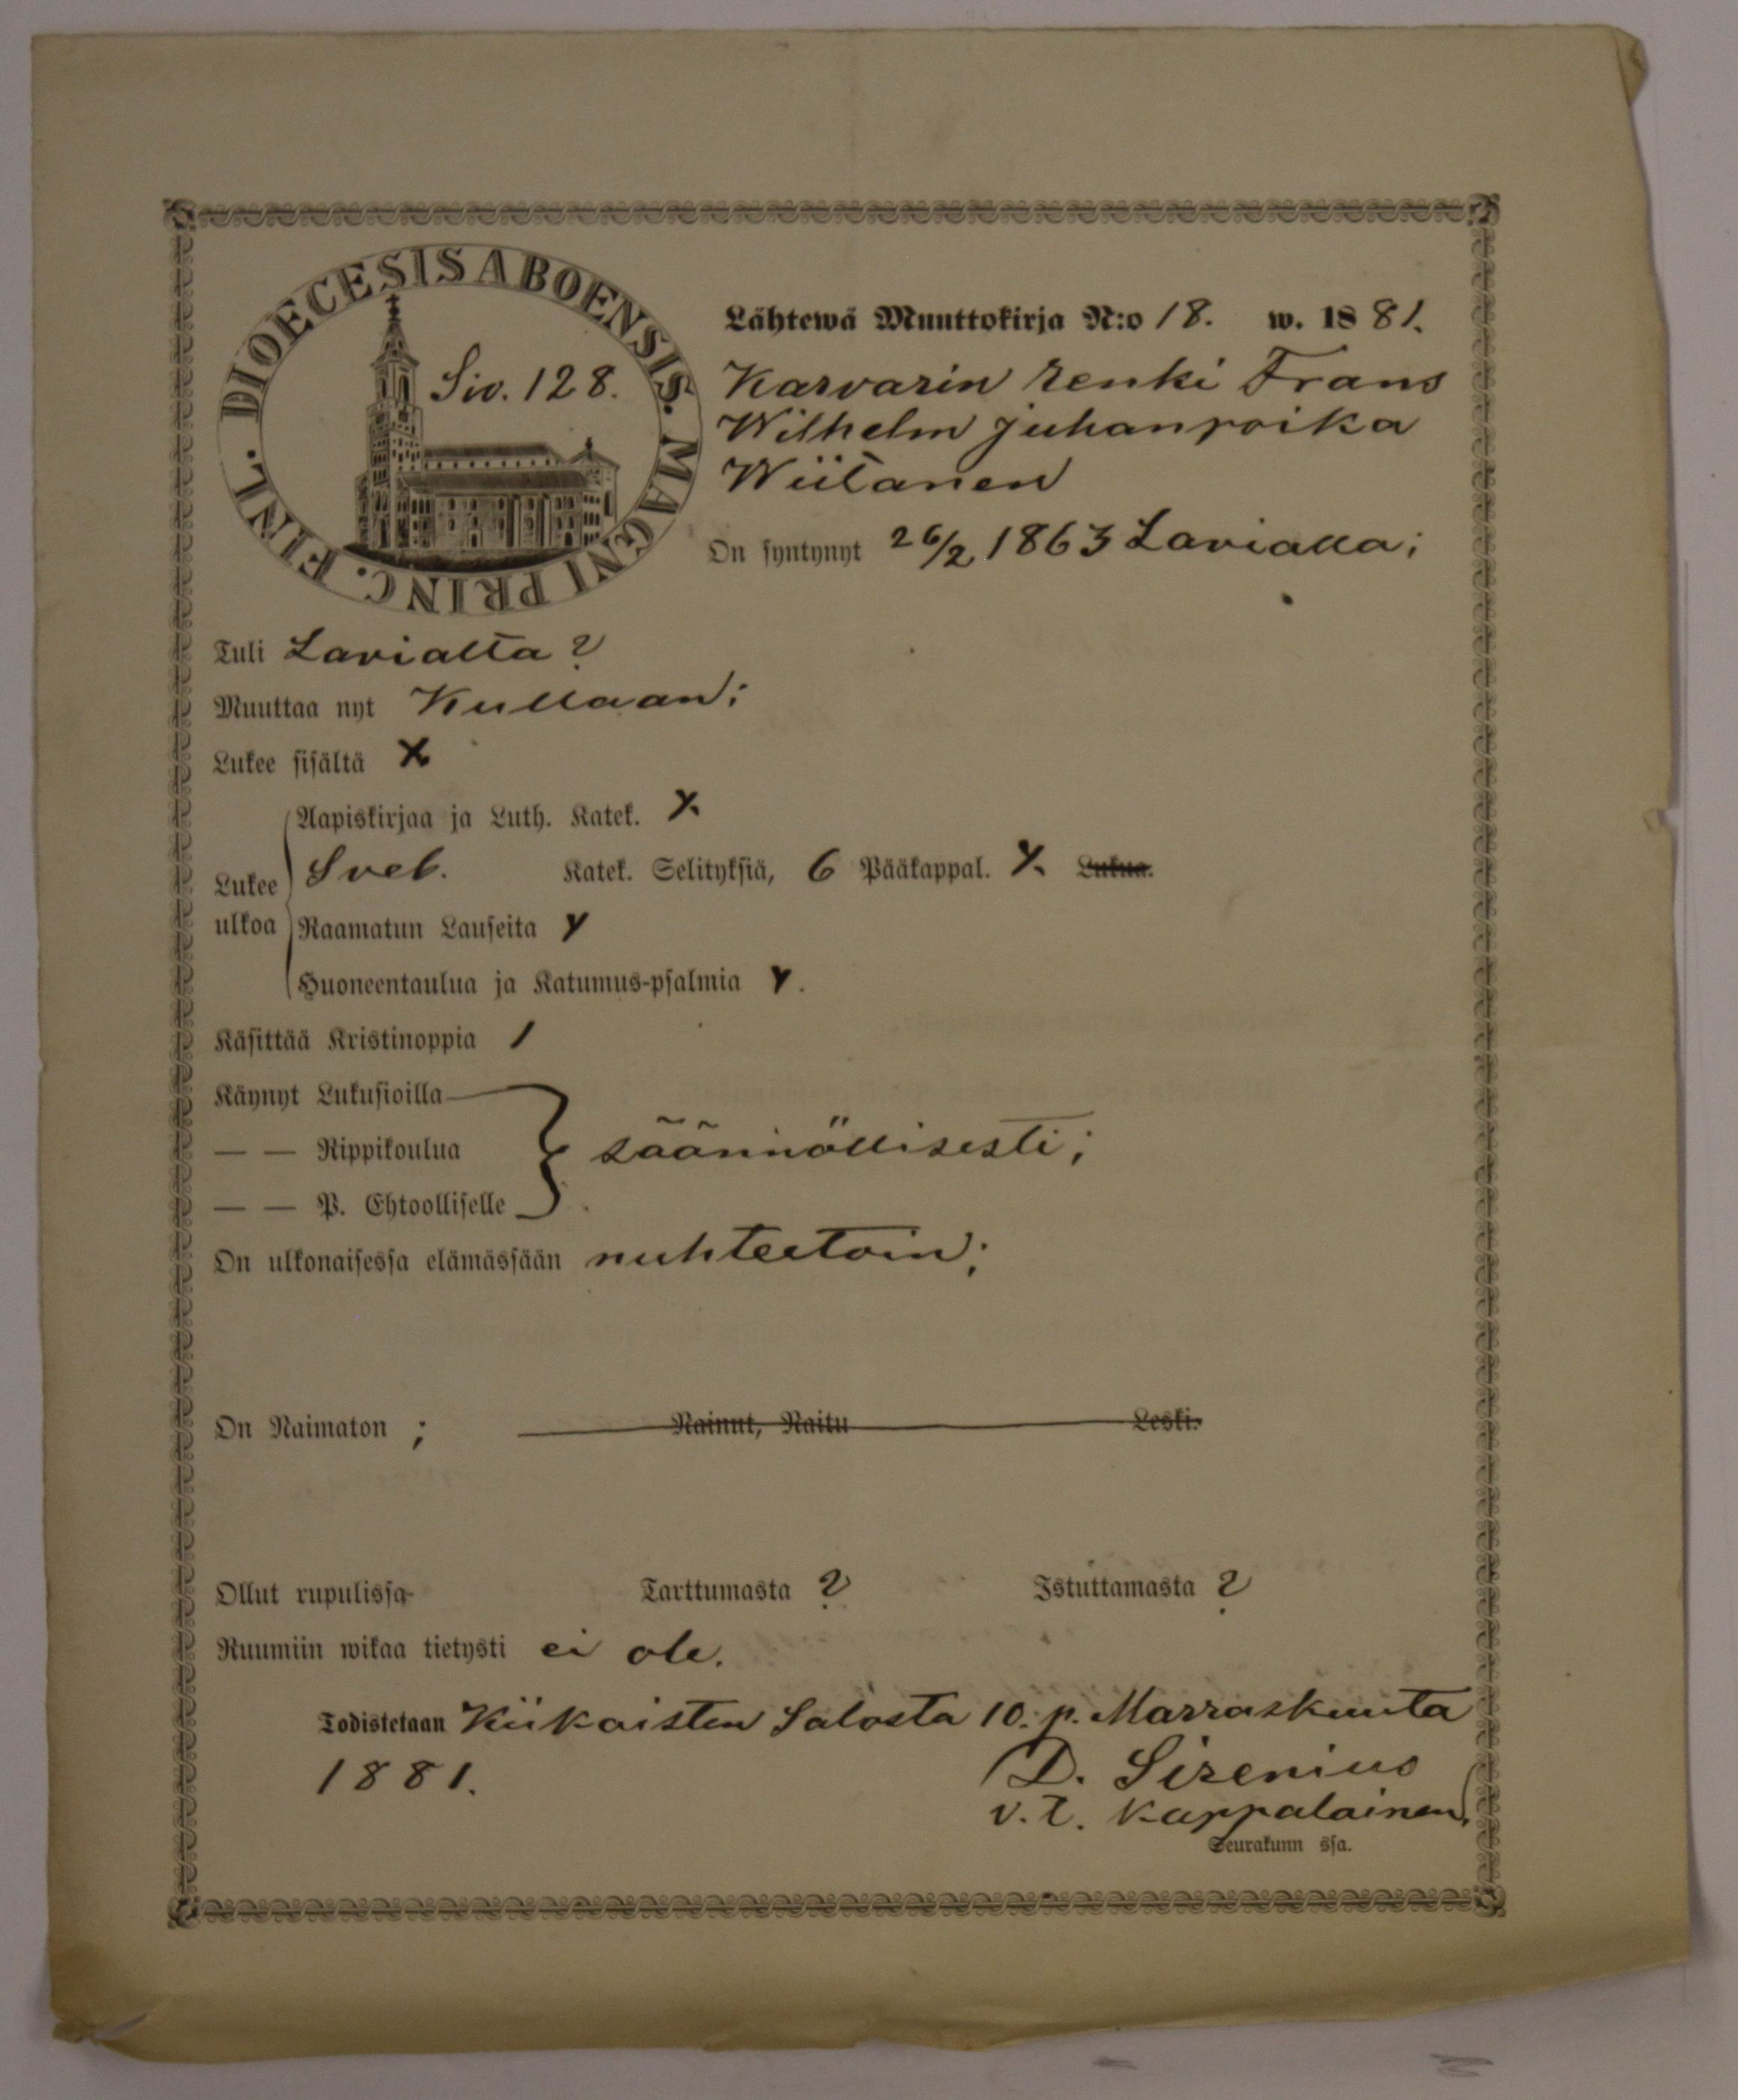 DIOECESIS ABOENSIS. MAGNI PRINC. FINL.
Siv. 128.
Lähtewä Muuttokirja N:o 18. w. 1881.
Karvarin renki Frans
Wilhelm Juhanpoika
Wiitanen
On syntynyt 26/2 1863 Lavialla;
Tuli Lavialta?
Muuttaa nyt Kullaan;
Lukee sisältä
Aapiskirjaa ja Luth. Katek.
Lukee Sveb. Katek. Selityksiä, 6 Pääkappal. Lukua.
ulkoa Raamatun Lauseita
Huoneentaulua ja Katumus-psalmia
Käsittää Kristinoppia 1
Käynyt Lukusioilla
— — Rippikoulua säännöllisesti;
— — P. Ehtoolliselle
On ulkonaisessa elämässään nuhteetoin;
On Naimaton ; Nainut, Naitu Leski.
Ollut rupulissa Tarttumasta ? Istuttamasta ?
Ruumiin wikaa tietysti ei ole.
Todistetaan Kiikaisten Salosta 10. p. Marraskuuta
1881. D. Sirenius
v. t. Kappalainen,
Seurakunn ssa.